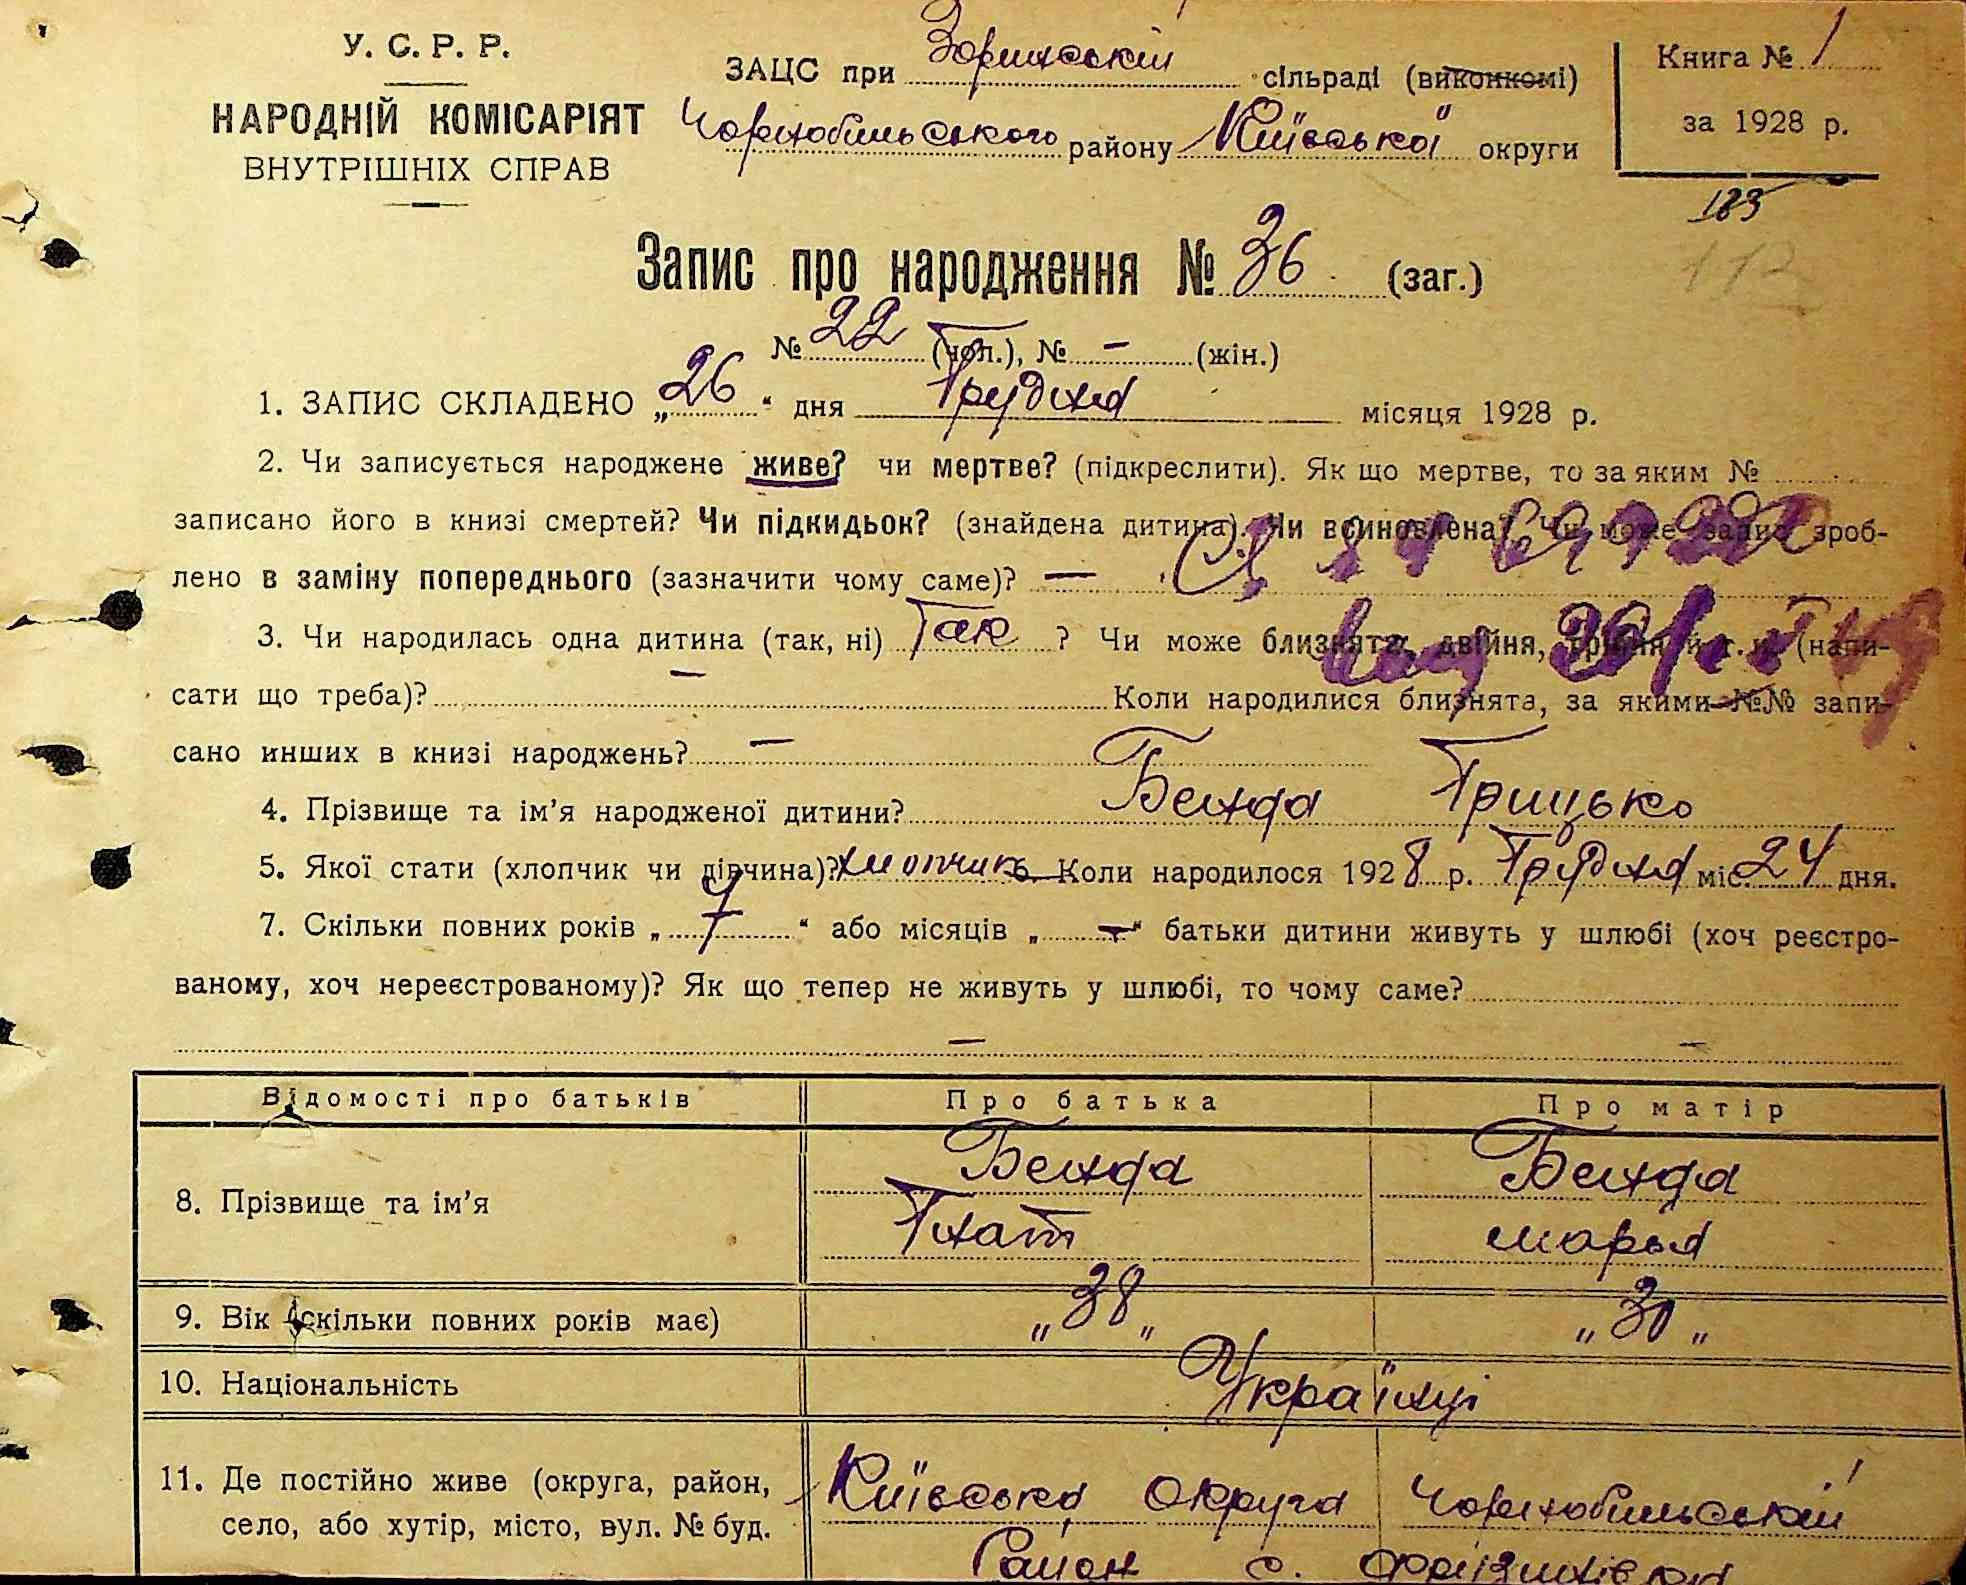 У. С. Р. Р.
НАРОДНІЙ КОМІСАРІЯТ
ВНУТРІШНІХ СПРАВ
ЗАЦС при Зоринській сільраді (виконкомі)
Чорнобильського району Київської округи
Книга № 1
за 1928 р.
183
112
Запис про народження № 36 (заг.)
№ 22 (чол.), № — (жін.)
1. ЗАПИС СКЛАДЕНО „26“ дня Грудня місяця 1928 р.
2. Чи записується народжене живе? чи мертве? (підкреслити). Як що мертве, то за яким №
записано його в книзі смертей? Чи підкидьок? (знайдена дитина). Чи всиновлена? Чи може запис зроб-
лено в заміну попереднього (зазначити чому саме)? —
3. Чи народилась одна дитина (так, ні) Так ? Чи може близнята: двійня, трійня й т. и. (напи-
сати що треба)? — Коли народилися близнята, за якими №№ запи-
сано инших в книзі народжень? —
4. Прізвище та ім’я народженої дитини? Бенда Грицько
5. Якої стати (хлопчик чи дівчина)? хлопчик 6. Коли народилося 1928 р. Грудня міс. 24 дня.
7. Скільки повних років „7“ або місяців „—“ батьки дитини живуть у шлюбі (хоч реєстро-
ваному, хоч нереєстрованому)? Як що тепер не живуть у шлюбі, то чому саме?
— —
Відомості про батьків Про батька Про матір
8. Прізвище та ім’я Бенда Гнат Бенда Марья
9. Вік (скільки повних років має) „38„ „30„
10. Національність Українці
11. Де постійно живе (округа, район, Київська округа Чорнобильський
село, або хутір, місто, вул. № буд. Район с.